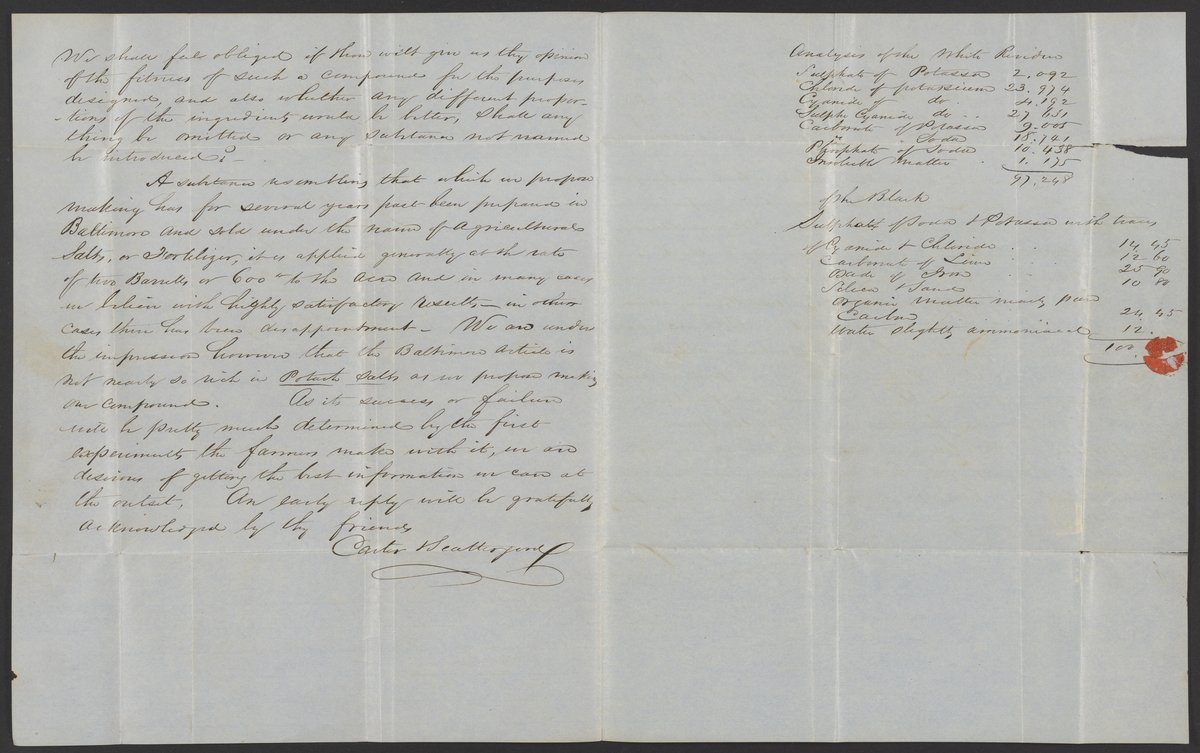 We shall feel obliged if thou wilt give us thy opinion
of the fitness of such a compound for the purposes
designed, and also whether any different propor-
tions of the ingredients would be better, shall any
thing be omitted or any substance not named
be introduced? -
A substance resembling that which we propose
making has for several years past been prepared in
Baltimore and sold under the name of Agricultural
Salts, or Fertilizer, it is applied generally at the rate
of two Barrells or 600 to the acre and in many cases
we believe with highly satisfactory results - in other
cases there has been disappointment - We are under
the impression however that the Baltimore article is
not nearly so rich in Potash Salts as we propose making
our compound. As its success or failure
will be pretty much determined by the first
experiments the farmers make with it, we are
desirous of getting the best information we can at
the outset. An early reply will be gratefully
acknowledged by thy friends
Carter & Scattergood
Analysis of the White Residue
Sulphate of Potassa 2.092
Chloride of potassium 23.974
Cyanide of do. 4.192
Sulpho Cyanide do. 27 651
Carbonate of Potassa 9.005
" . Soda 18.721
Phosphate of Soda 10.438
Insoluble matter 1.175
97.248
of the Black
Sulphate of Soda & Potassa with traces
of Cyanide & Chloride 14 45
Carbonate of Lime 12 60
Oxide of Iron 25 90
Silica & Sand 10 80
Organic matter nearly pure
Carbon 24 45
Water slightly ammoniacal 12.
100.